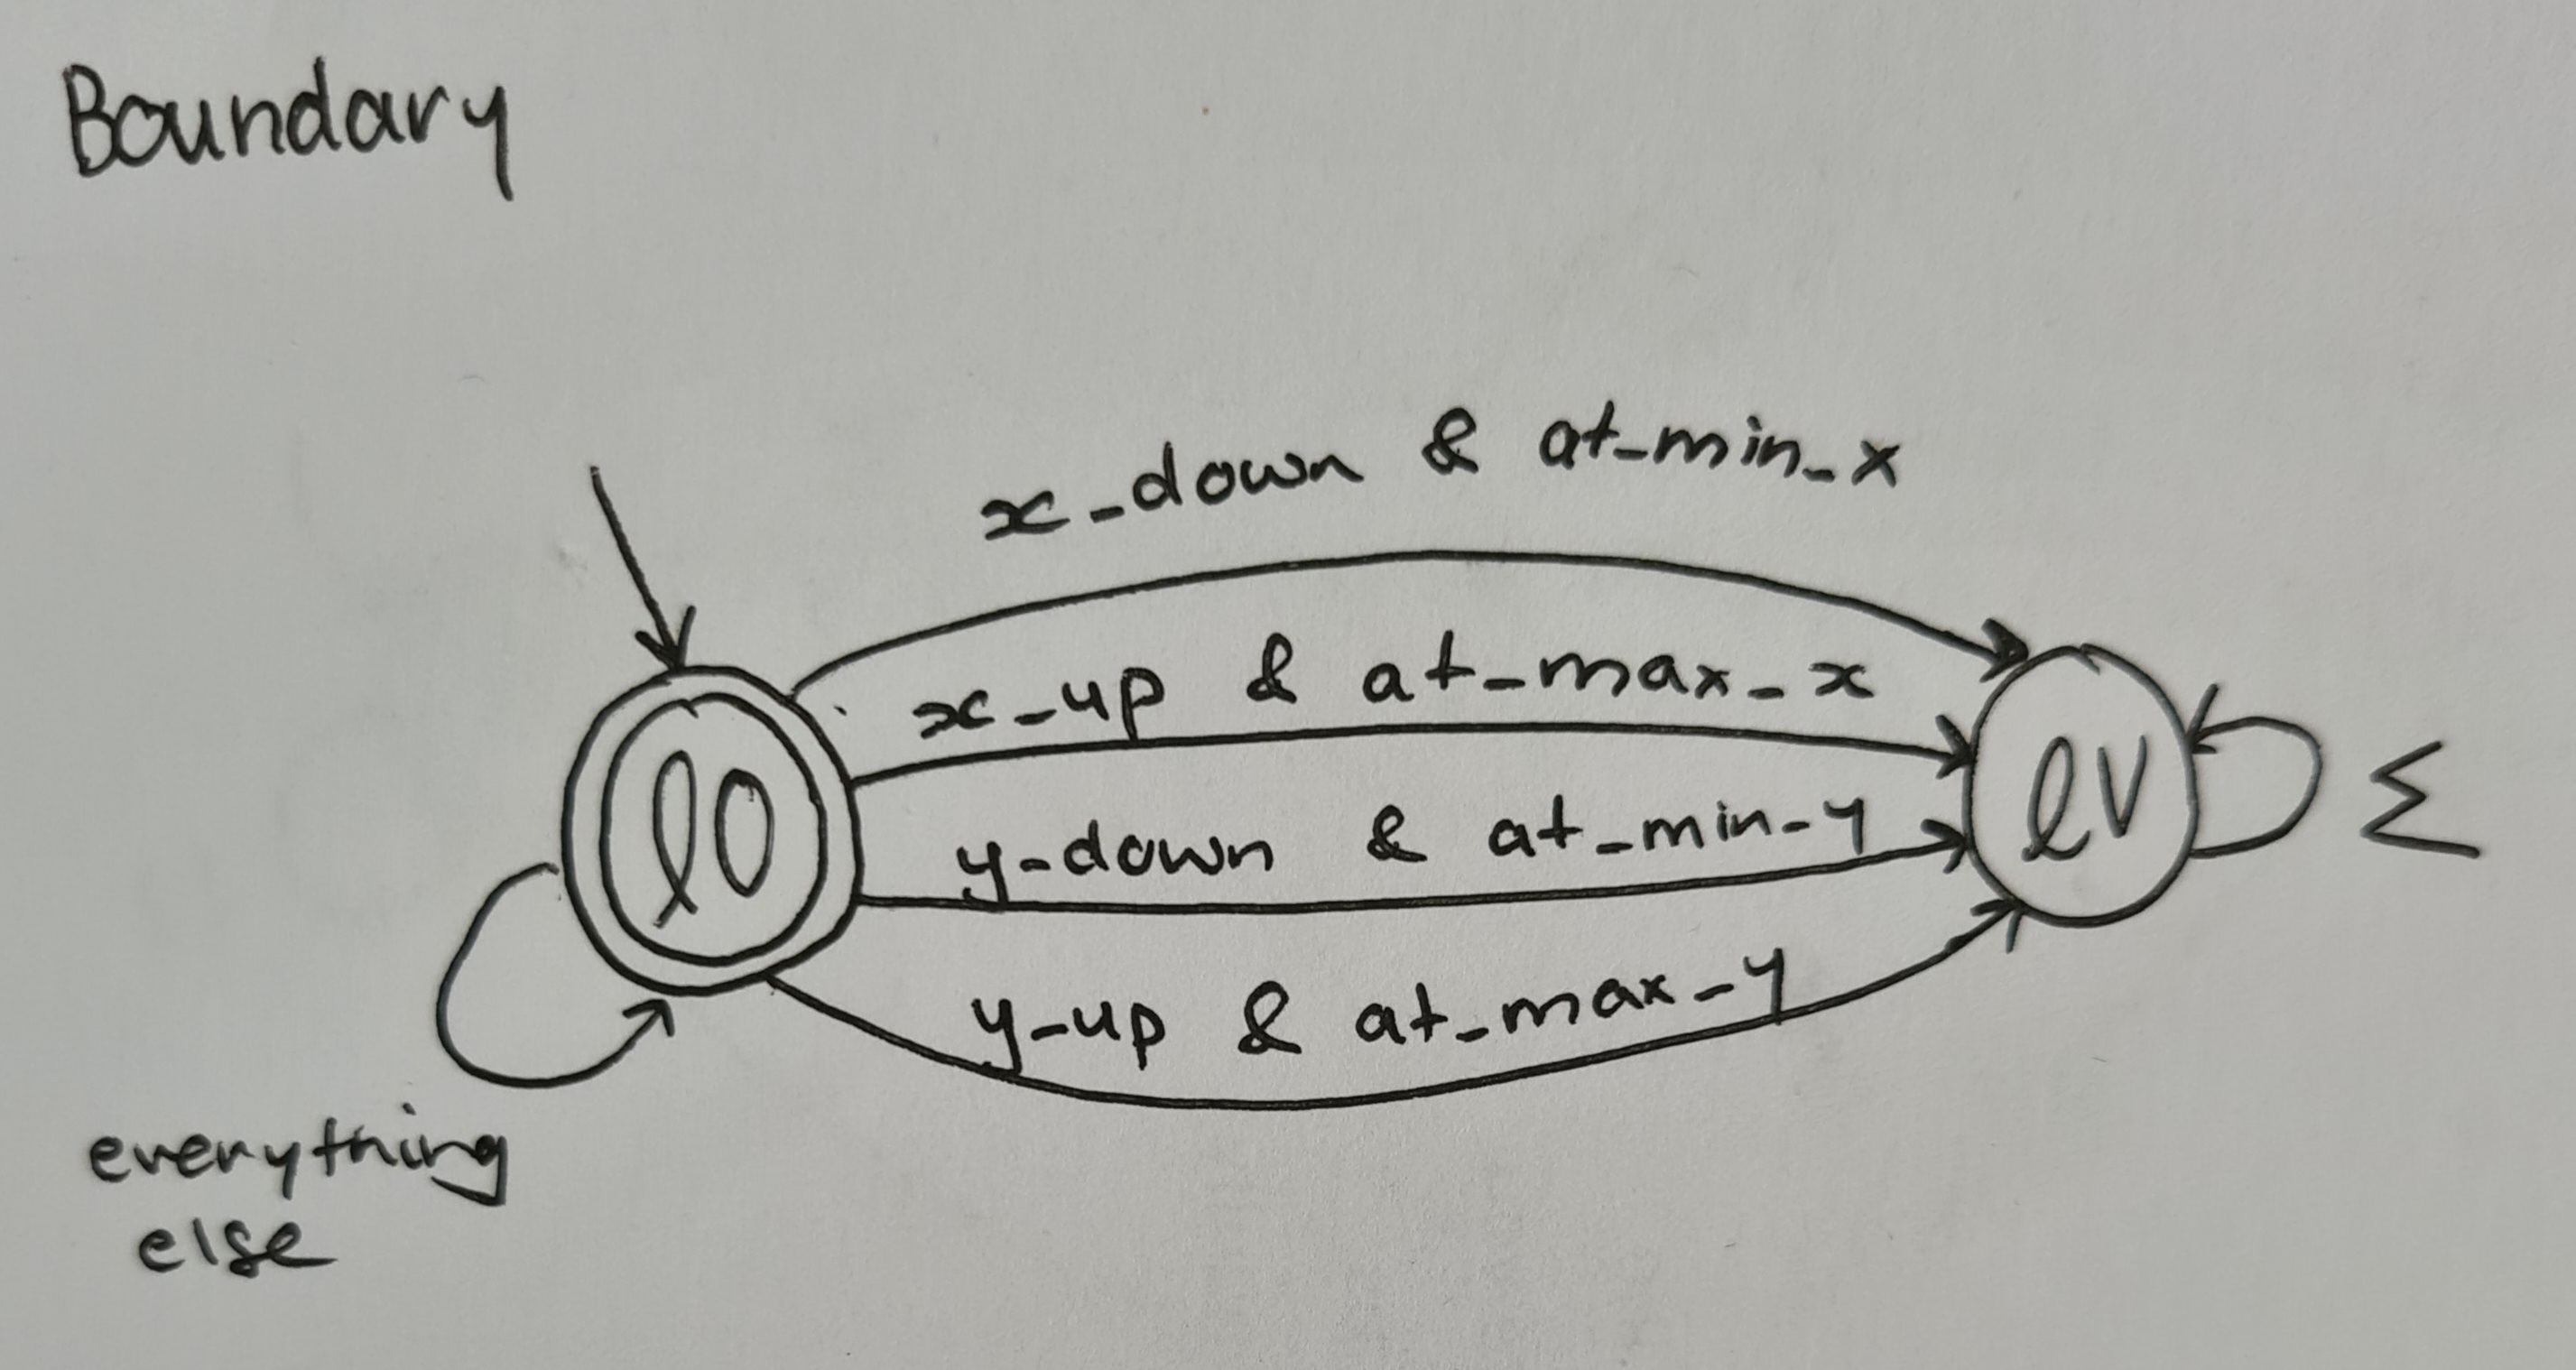 Boundary
x_down & at_min_x
x_up & at_max_x
l0
lV
Σ
y-down & at_min-y
y_up & at_max_y
everything
else